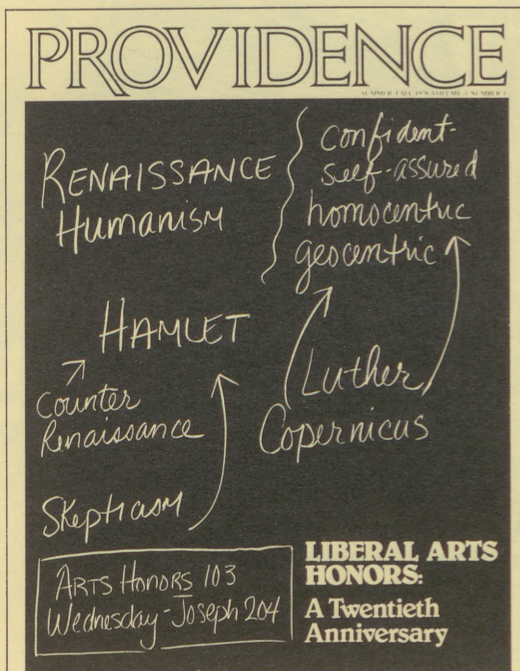 PROVIDENCE
RENAISSANCE
Humanism
confident-
self-assured
homocentric
geocentric
HAMLET
Counter
Renaissance
Luther
Copernicus
Skepticism
ARTS HONORS 103
Wednesday-Joseph 204
LIBERAL ARTS
HONORS:
A Twentieth
Anniversary